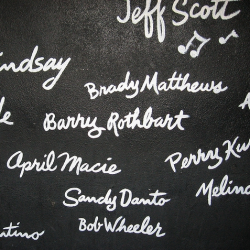 Jeff Scott
indsay
Brady Matthews
Barry Rothbart
April Macie
Perry Ku
Sandy Danto
Melind
Bob Wheeler
ntino